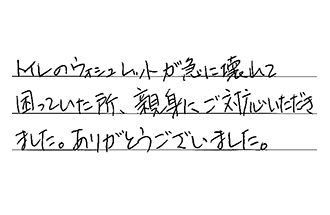 トイレのウォシュレットが急に壊れて
困っていた所、親身にご対応いただき
ました。ありがとうございました。